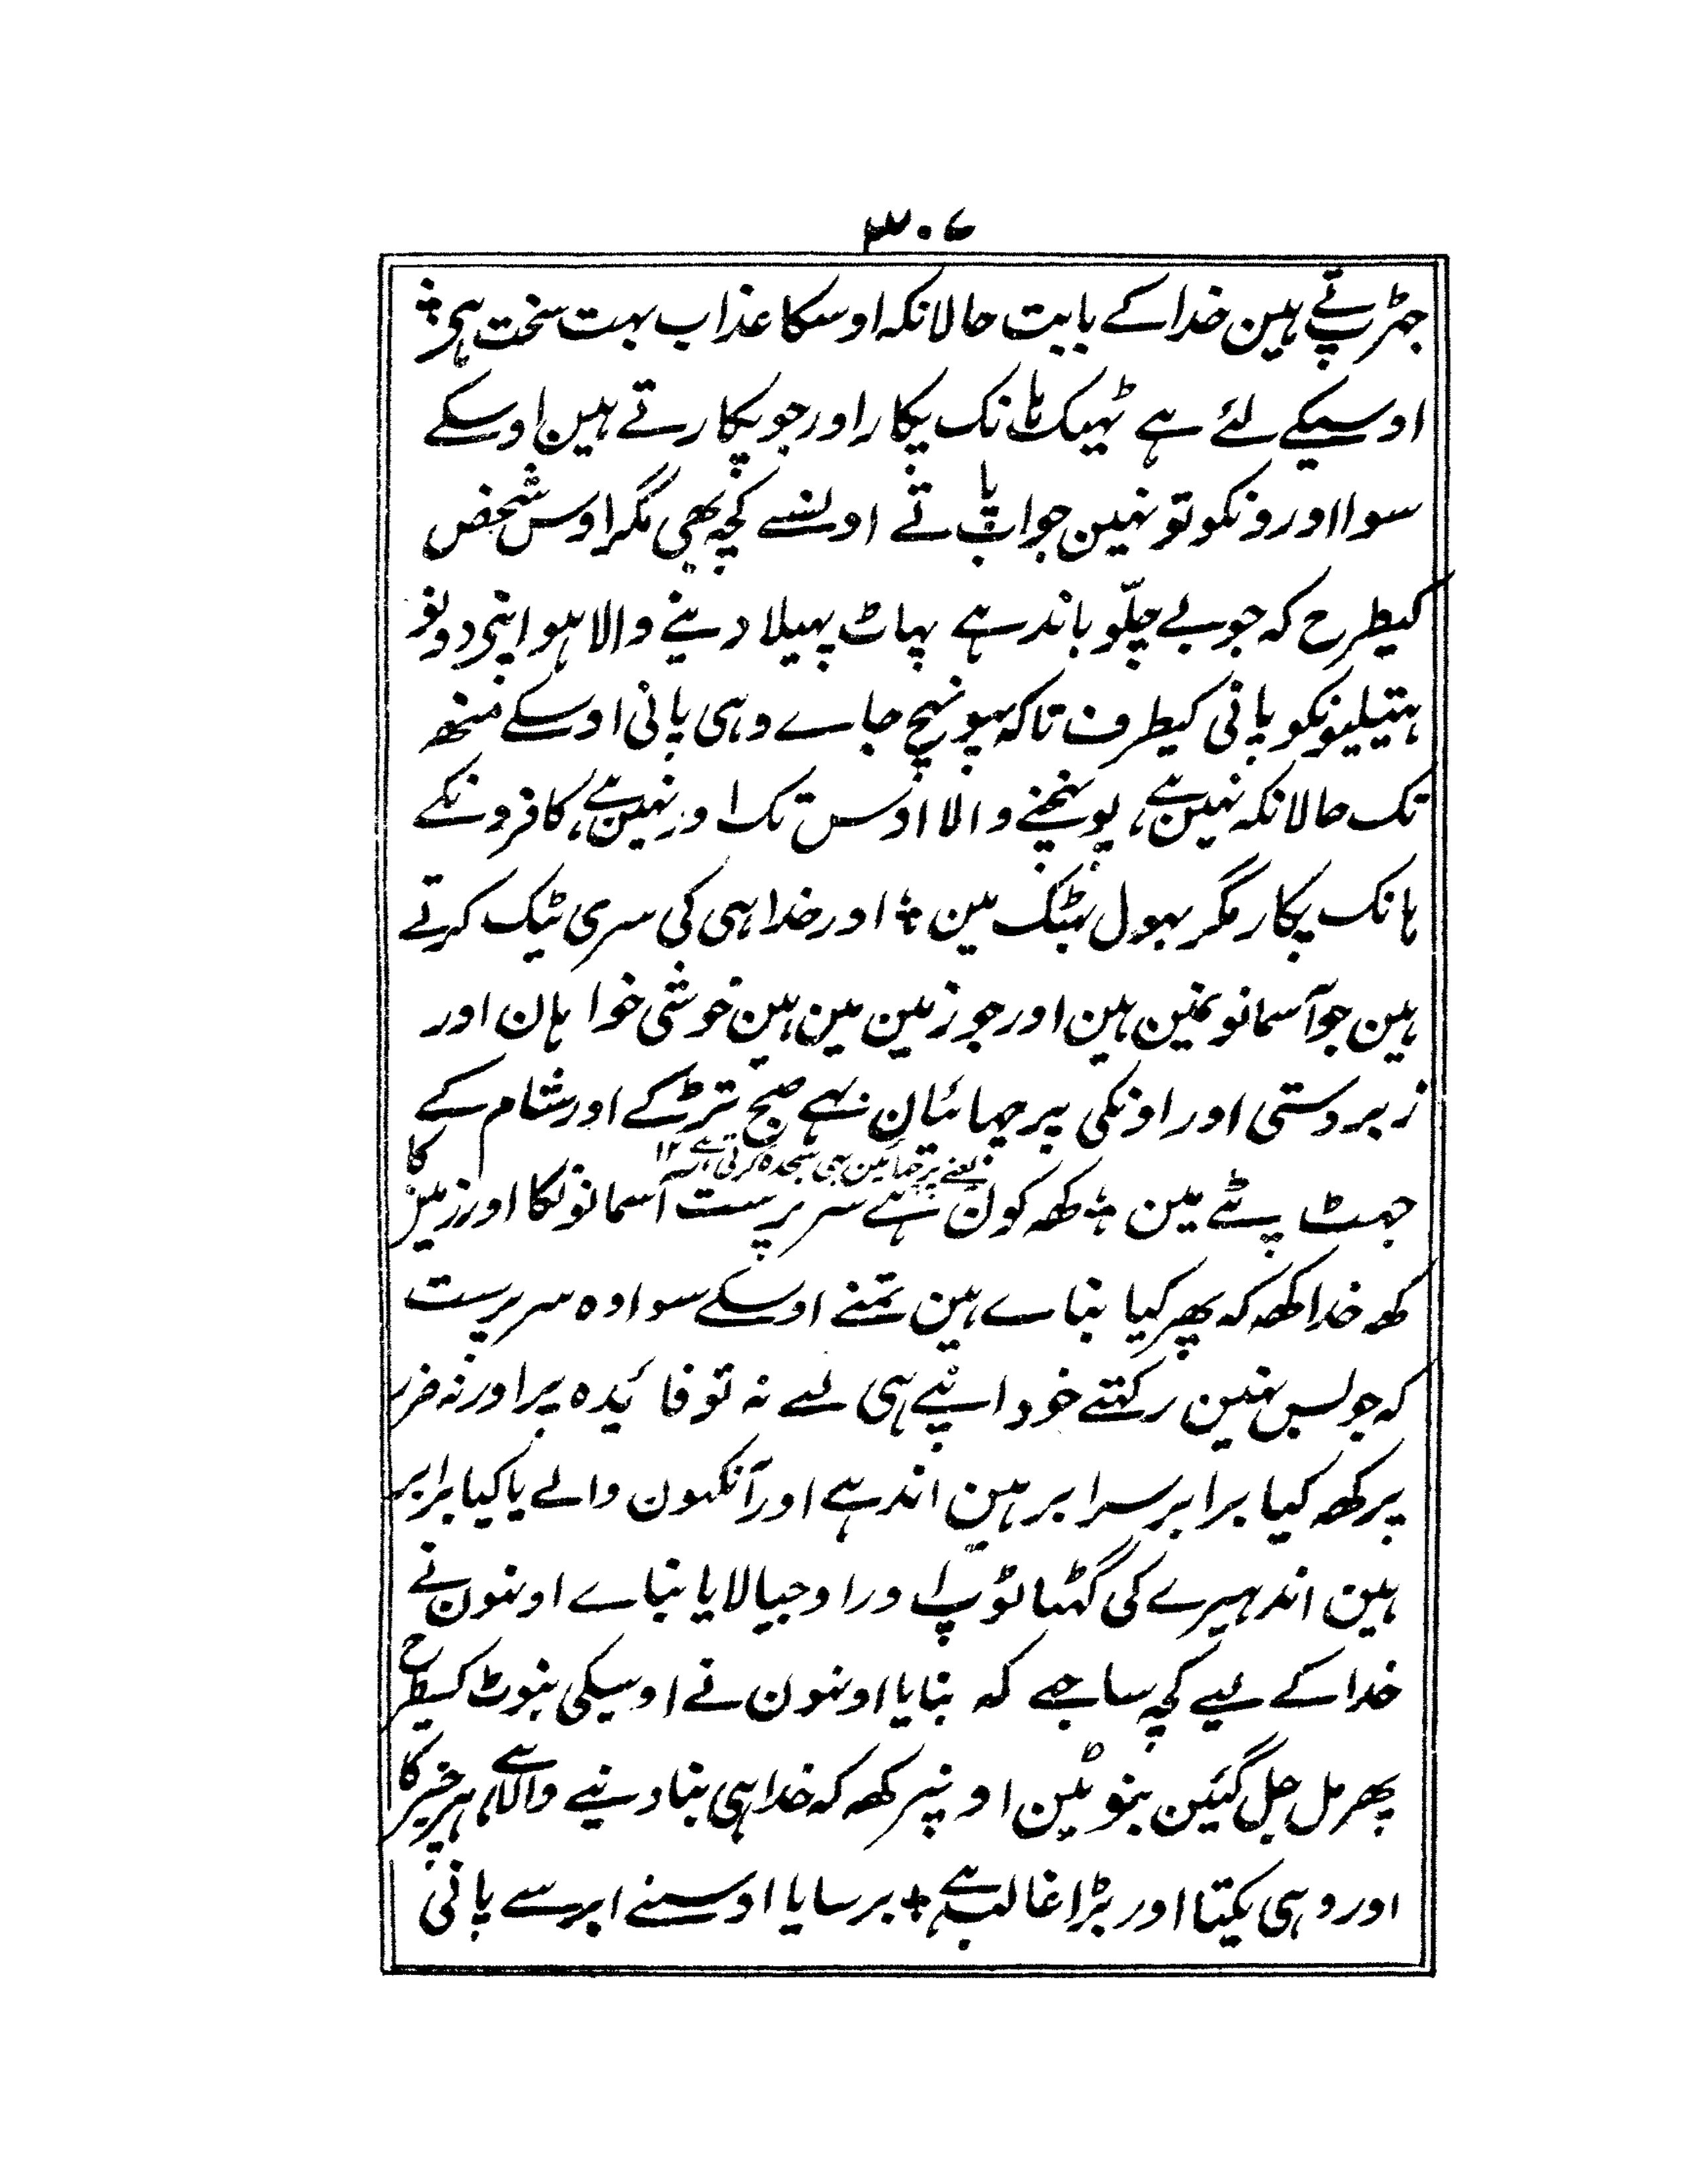 ۳۰۷
جہڑپتے ہین خدا کے بابت حالانکہ اوسکا عذاب بہت سخت ہی ۞
اوسیکے لئے ہے ٹہیک ہانک پکار اور جو پکارتے ہین اوسکے
سوا اورونکو تو نہین جواب پاتے اونسے کچہ بھی مگر اوس شخص
کیطرح کہ جو بے چلّو باندہے پہاٹ پہیلا دینے والا ہو اپنی دونو
ہتیلیونکو پانی کیطرف تاکہ پہونچ جاے وہی پانی اوسکے منھ
تک حالانکہ نہین ہے پہونچنے والا اوس تک اور نہین ہے کافرونکے
ہانک پکار مگر بہول بہٹک مین ۞ اور خدا ہی کی سری ٹیک کرتے
ہین جو آسمانونمین ہین اور جو زمین مین ہین خوشی خواہان اور
زبردستی اور اونکی پرچہائیان نہے صبح تڑکے اور شام کے
یعنے پرچھائین بھی سجدہ کرتی ہے ۱۲
جہٹ پٹے مین ۞ کھہ کون ہے سرپرست آسمانونکا اور زمین کا
کھہ خدا کھہ کہ پھر کیا بناے ہین تمنے اوسکے سوا وہ سرپرست
کہ جو بس نہین رکہتے خود اپنے ہی لیے نہ تو فائدہ پر اور نہ ضرر
پر کھہ کیا برابر سرابر ہین اندہے اور آنکہون والے یا کیا برابر
ہین اندہیرے کی گہٹا ٹوپ اور اوجیالا یا بناے اونہون نے
خدا کے لیے کچہ ساجہے کہ بنایا اونہون نے اوسیکی بنوٹ کیطرح
پھر مل جل گئین بنوٹین اونپر کھہ کہ خدا ہی بنا دینے والا ہے ہر چیز کا
اور وہی یکتا اور بڑا غالب ہے ۞ برسایا اوسنے ابر سے پانی